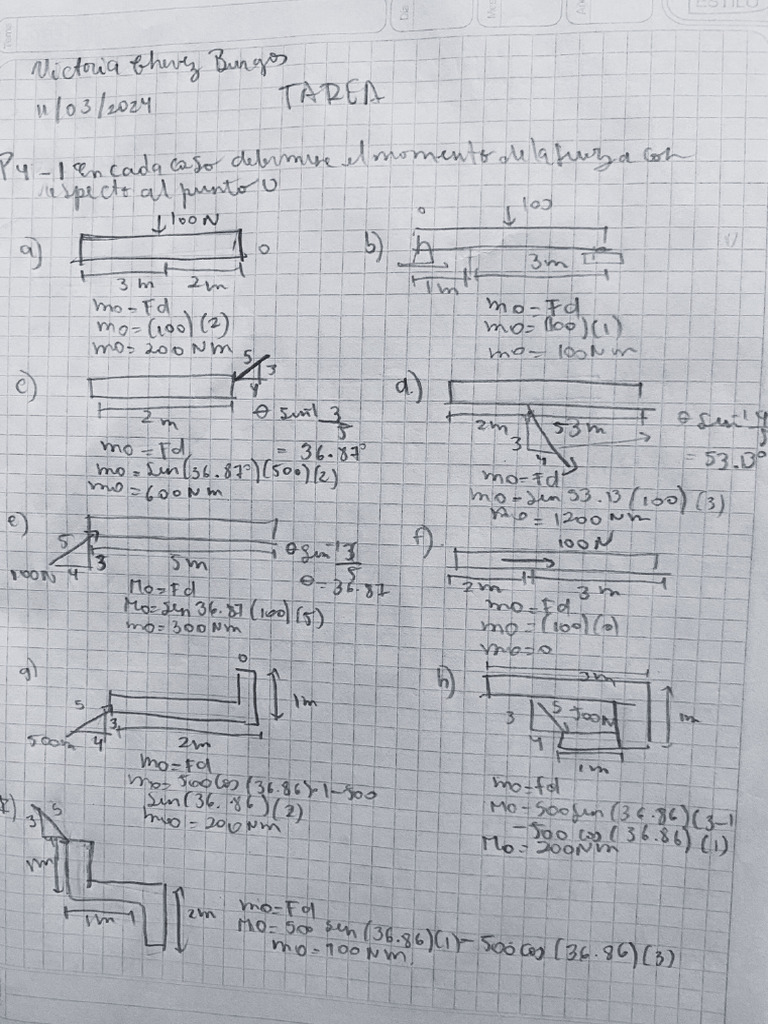 Victoria Chevez Burgos
11/03/2024
TAREA
P4-1 En cada caso determine el momento de la fuerza con
respecto al punto O
a)
100N
O
3m 2m
mo=Fd
mo=(100)(2)
mo=200Nm
b)
o
3m
1m
mo=Fd
mo=(100)(1)
mo=100Nm
c)
5
3
4
2m
θ sen⁻¹ 3/5
= 36.87°
mo=Fd
mo=sen(36.87°)(500)(2)
mo=600Nm
d.)
2m 53m
3
4
θ sen⁻¹ 4/5
= 53.13°
mo=Fd
mo=sen 53.13 (100)(3)
mo=1200Nm
e)
5
4 3
5m
θ sen⁻¹ 3/5
θ=36.87
Mo=Fd
Mo=sen 36.87(100)(5)
mo=300Nm
f)
100N
2m 3m
mo=Fd
mo=(100)(0)
mo=0
g)
o
1m
5
3
500m 4
2m
mo=Fd
mo=500cos(36.86)·1-500
sen(36.86)(2)
mo=200Nm
h)
3 5 500N
4
m
1m
mo=fd
Mo=500sen(36.86)(3-1
-500cos(36.86)(1)
Mo=200Nm
3 5
1m
2m
mo=Fd
Mo=500 sen(36.86)(1)-500cos(36.86)(3)
mo=100Nm